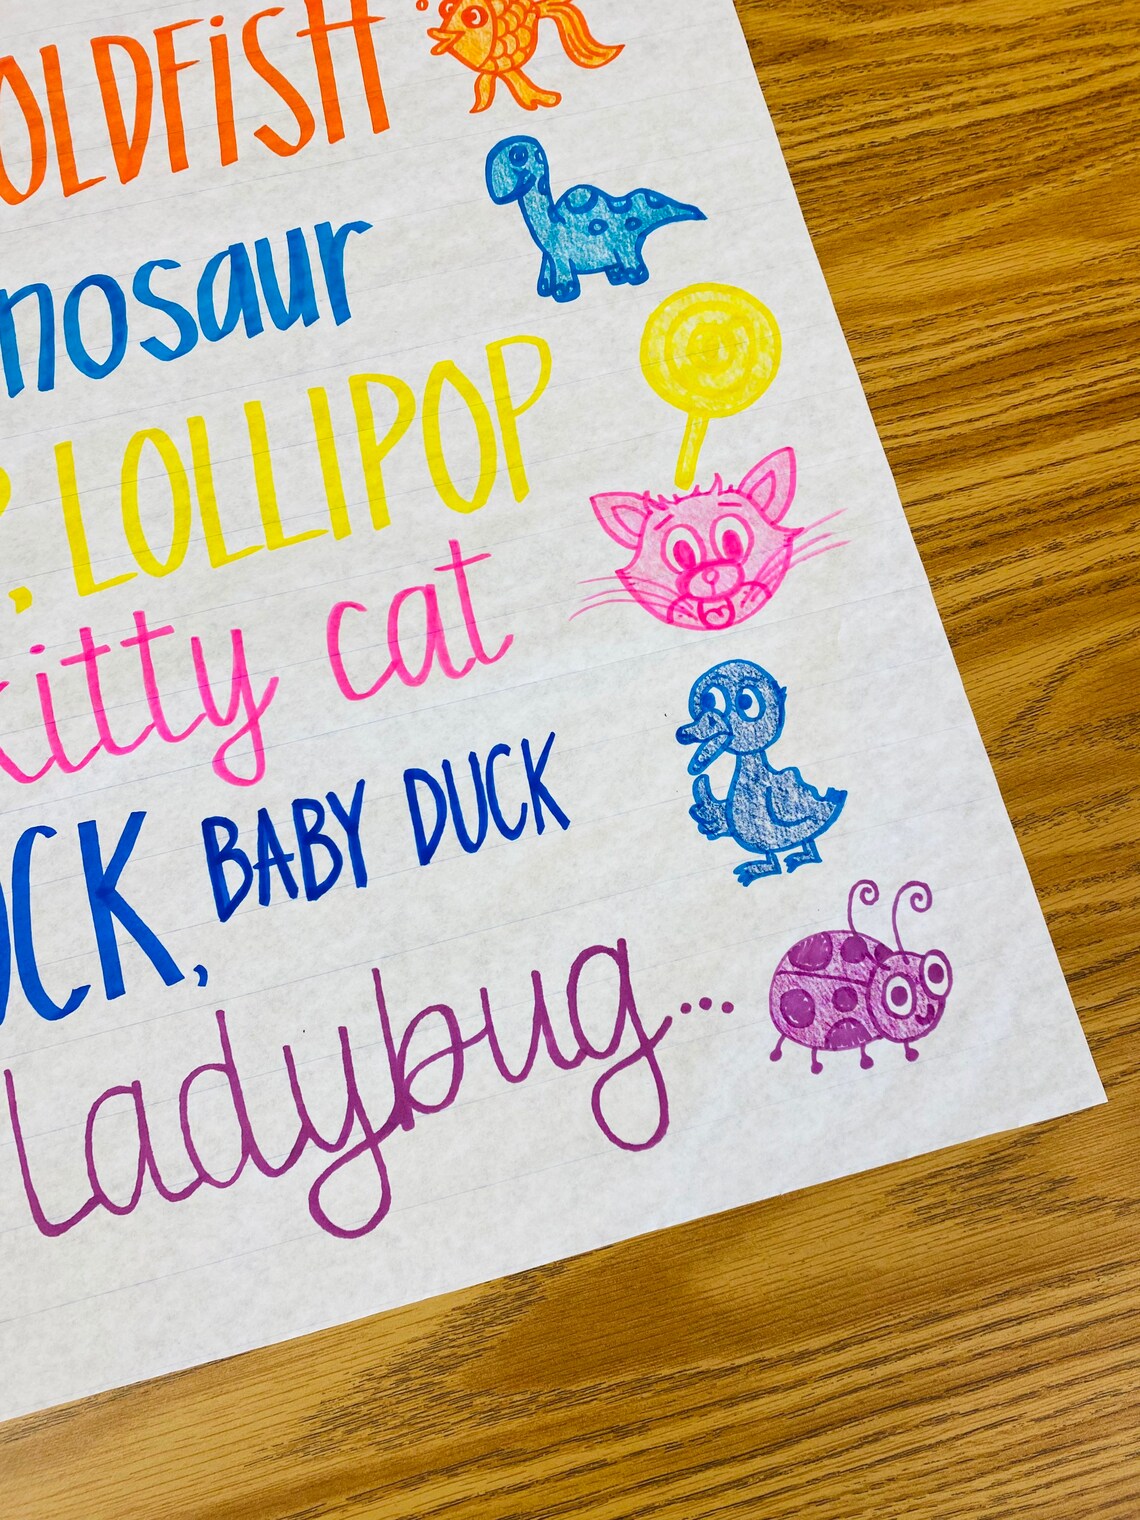 OLDFiSH
nosaur
, LOLLIPOP
kitty cat
CK, BABY DUCK
Ladybug...